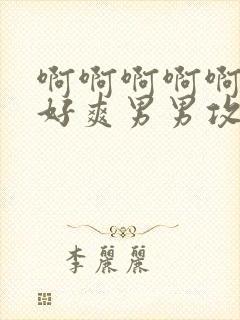 啊啊啊啊啊
好爽男男攻
李麗麗